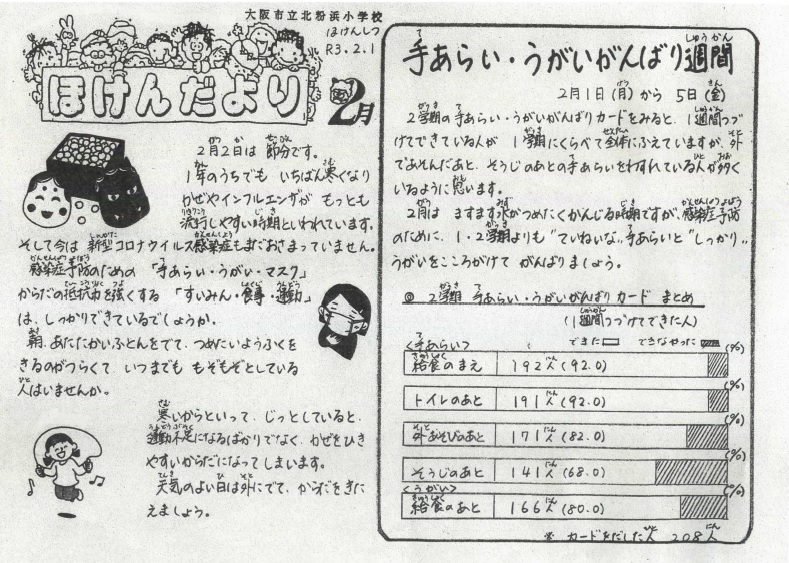 大阪市立北粉浜小学校
ほけんしつ
R3.2.1
ほけんだより
2月
2月2日は 節分です。
1年のうちでも いちばん寒くなり
かぜやインフルエンザが もっとも
流行しやすい時期といわれています。
そして今は 新型コロナウイルス感染症もまだおさまっていません。
感染症予防のための 「手あらい・うがい・マスク」
からだの抵抗力を強くする 「すいみん・食事・運動」
は、しっかりできているでしょうか。
朝、あたたかいふとんをでて、つめたいようふくを
きるのがつらくて、いつまでも もぞもぞとしている
人はいませんか。
寒いからといって、じっとしていると、
運動不足になるばかりでなく、かぜをひき
やすいからだになってしまいます。
天気のよい日は外にでて、からだをきた
えましょう。
手あらい・うがいがんばり週間
2月1日(月)から 5日(金)
2学期の手あらい・うがいがんばりカードをみると、1週間つづ
けてできている人が 1学期にくらべて全体にふえていますが、外
であそんだあと、そうじのあとの手あらいをわすれている人が多く
いるように思います。
2月は ますます水がつめたくかんじる時期ですが、感染症予防
のために、1・2学期よりも"ていねいな"手あらいと"しっかり"
うがいをこころがけて がんばりましょう。
◎ 2学期 手あらい・うがいがんばりカード まとめ
(1週間つづけてできた人)
<手あらい> できた できなかった (%)
給食のまえ 192人(92.0)
(%)
トイレのあと 191人(92.0)
(%)
外あそびのあと 171人(82.0)
(%)
そうじのあと 141人(68.0)
<うがい> (%)
給食のあと 166人(80.0)
※ カードをだした人 208人